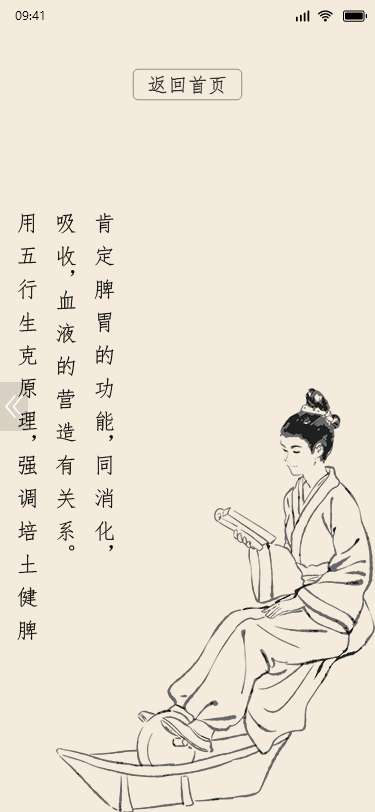 09:41
返回首页
肯定脾胃的功能，同消化，
吸收，血液的营造有关系。
用五行生克原理，强调培土健脾